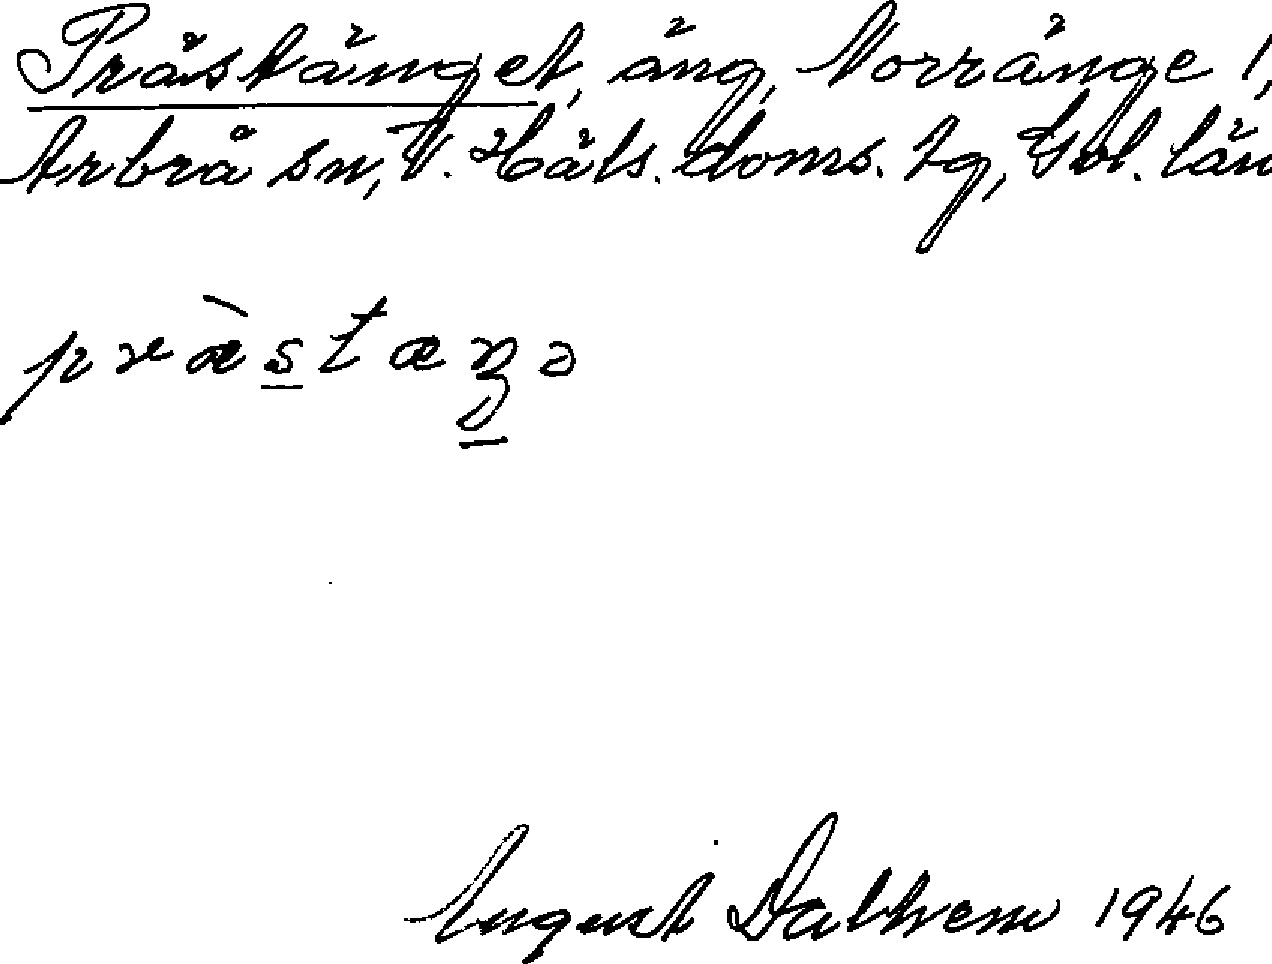 Prästänget, äng, Norränge 1,
Arbrå sn, V. Häls. doms. tg, Gvl. län
præ̀stæŋə
August Dalhem 1946